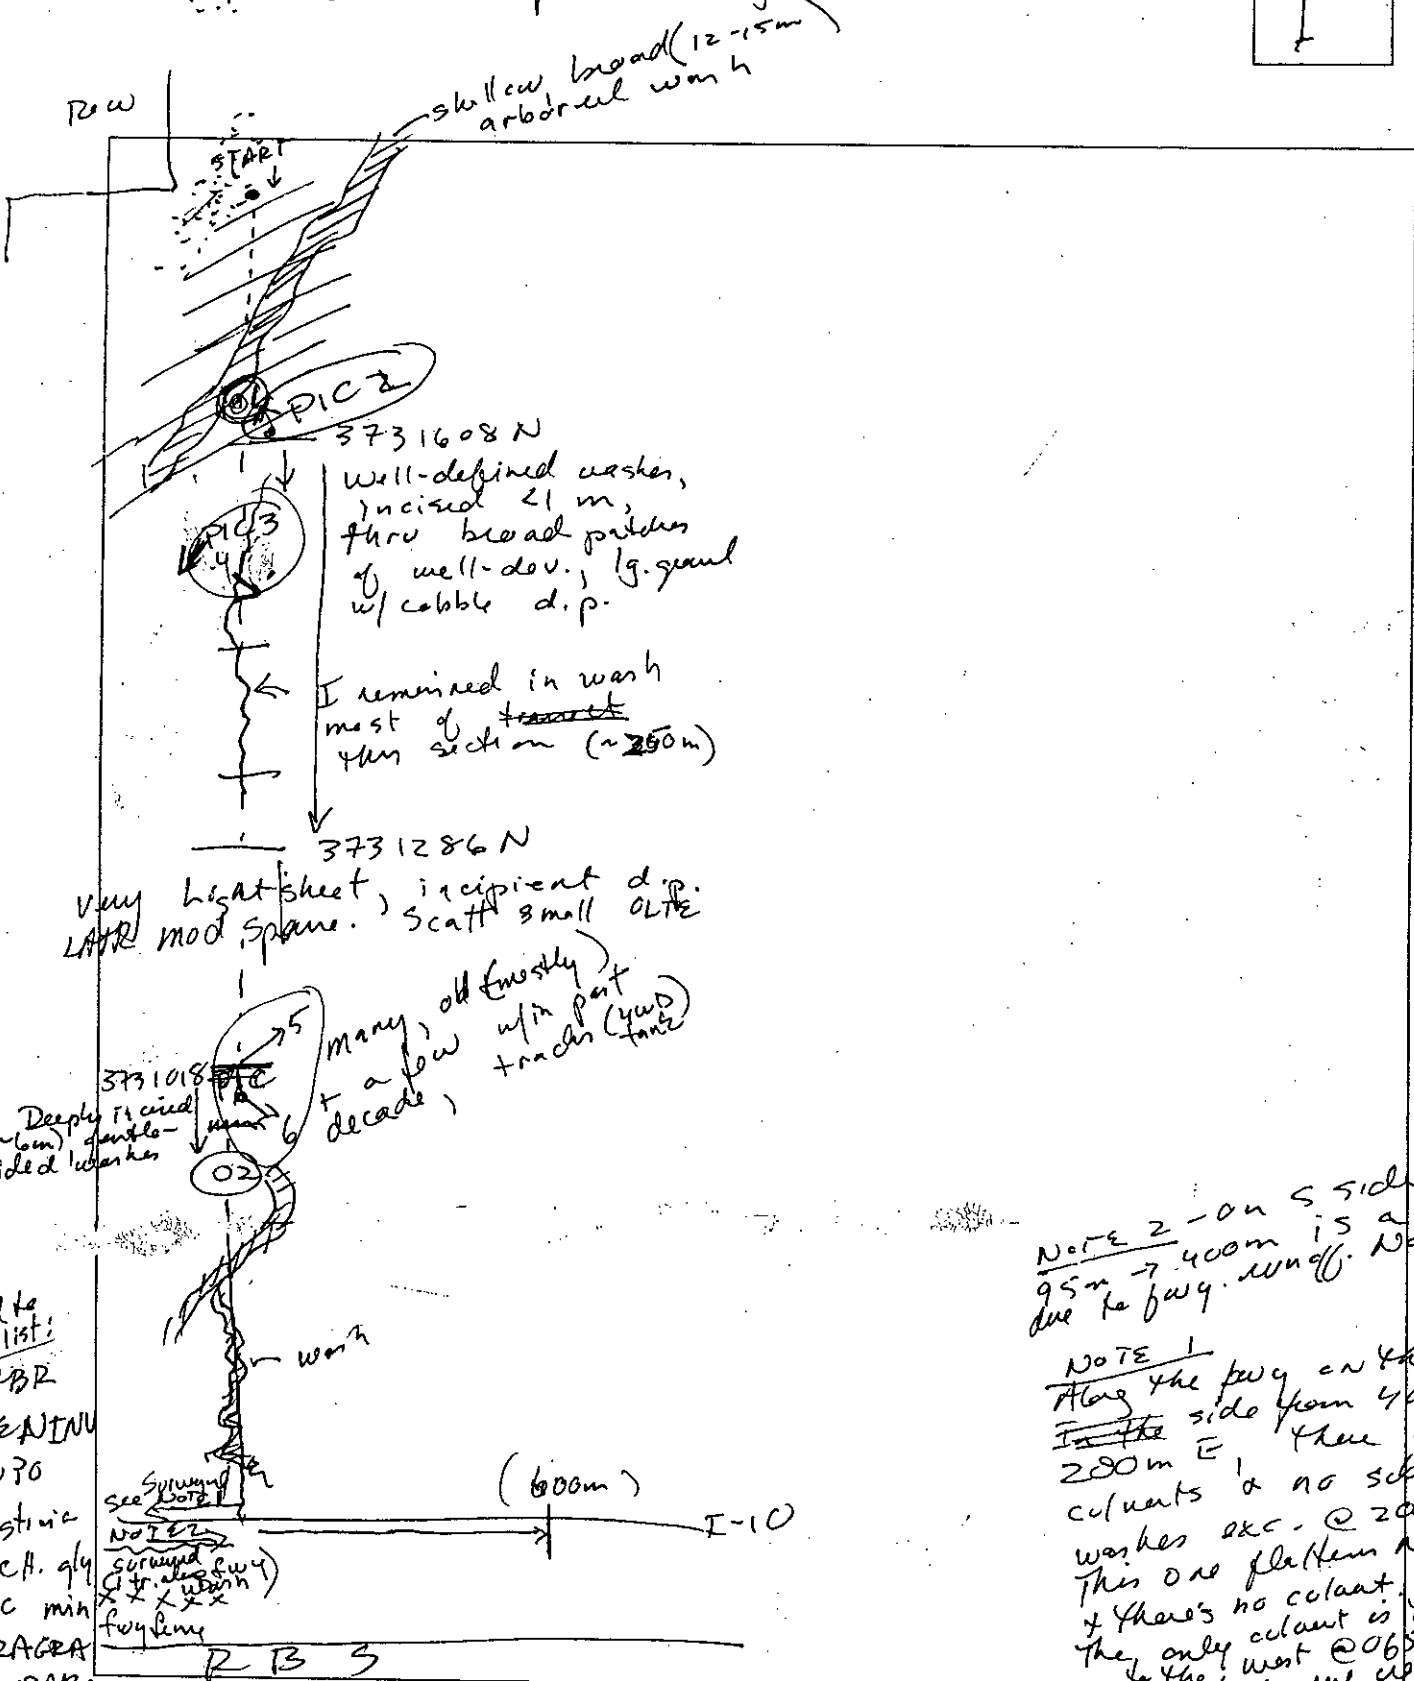 shallow, broad (12-15m)
arboreal wash
ROW
START
PIC 2
3731608 N
Well-defined washes,
incised <1 m,
thru broad patches
of well-dev., lg. gravel
w/ cobble d.p.
PIC 3
4
I remained in wash
most of transect
this section (~250m)
3731286 N
Very light sheet, incipient d.p.
LATR mod sparse. Scatt small OLTE
many, old (mostly)
+ a few w/in past
decade, tracks (4WD
tank)
5
3731018
PIC
6
Deeply incised
~6m) gentle-
sided washes
02
wash
list:
BR
stivia
CH. gly
c min
ZAGRA
Surveyed
See NOTE 1
NOTE 2
surveyed
wash
x x x x x
fwy fence
(600m)
I-10
R B S
NOTE 2 - On S side
95m → 400m is a
due to fwy. runoff. No
NOTE 1
Along the fwy on the
In the side from
200m E, there
culverts & no
washes exc. @ 20
This one flattens
+ there's no culvert.
The only culvert is
to the west @ 06